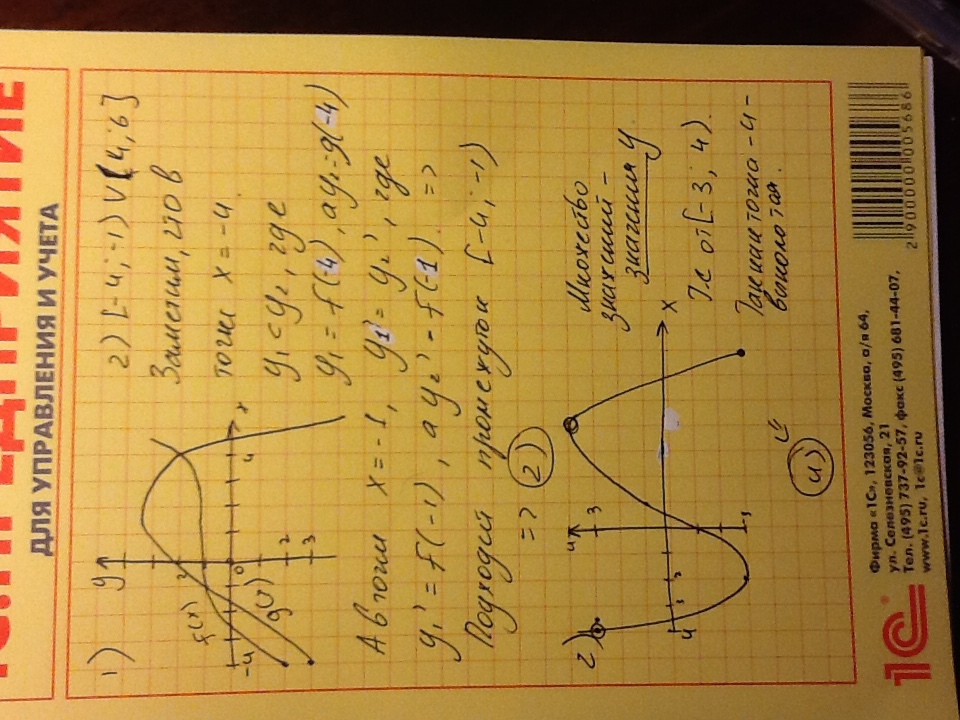 ПРЕДПРИЯТИЕ
ДЛЯ УПРАВЛЕНИЯ И УЧЕТА
1)
y
f(x)
g(x)
2
-4
0
4
x
-2
-3
2) [-4; -1) ∪ (4; 6]
Заметим, что в
точке x = -4
y1 < y2, где
y1 = f(-4), а y2 = g(-4)
А в точке x = -1, y1' = y2', где
y1' = f(-1), а y2' - f(-1). =>
Подходит промежуток [-4; -1)
=> 2)
2)
4
3
x
4
Множество
значений -
значения y
Т.е от [-3; 4).
Так как точка -4-
выколотая.
4)
1С
Фирма «1С», 123056, Москва, а/я 64,
ул. Селезневская, 21
Тел. (495) 737-92-57, факс (495) 681-44-07,
www.1c.ru, 1c@1c.ru
2 900000 005686